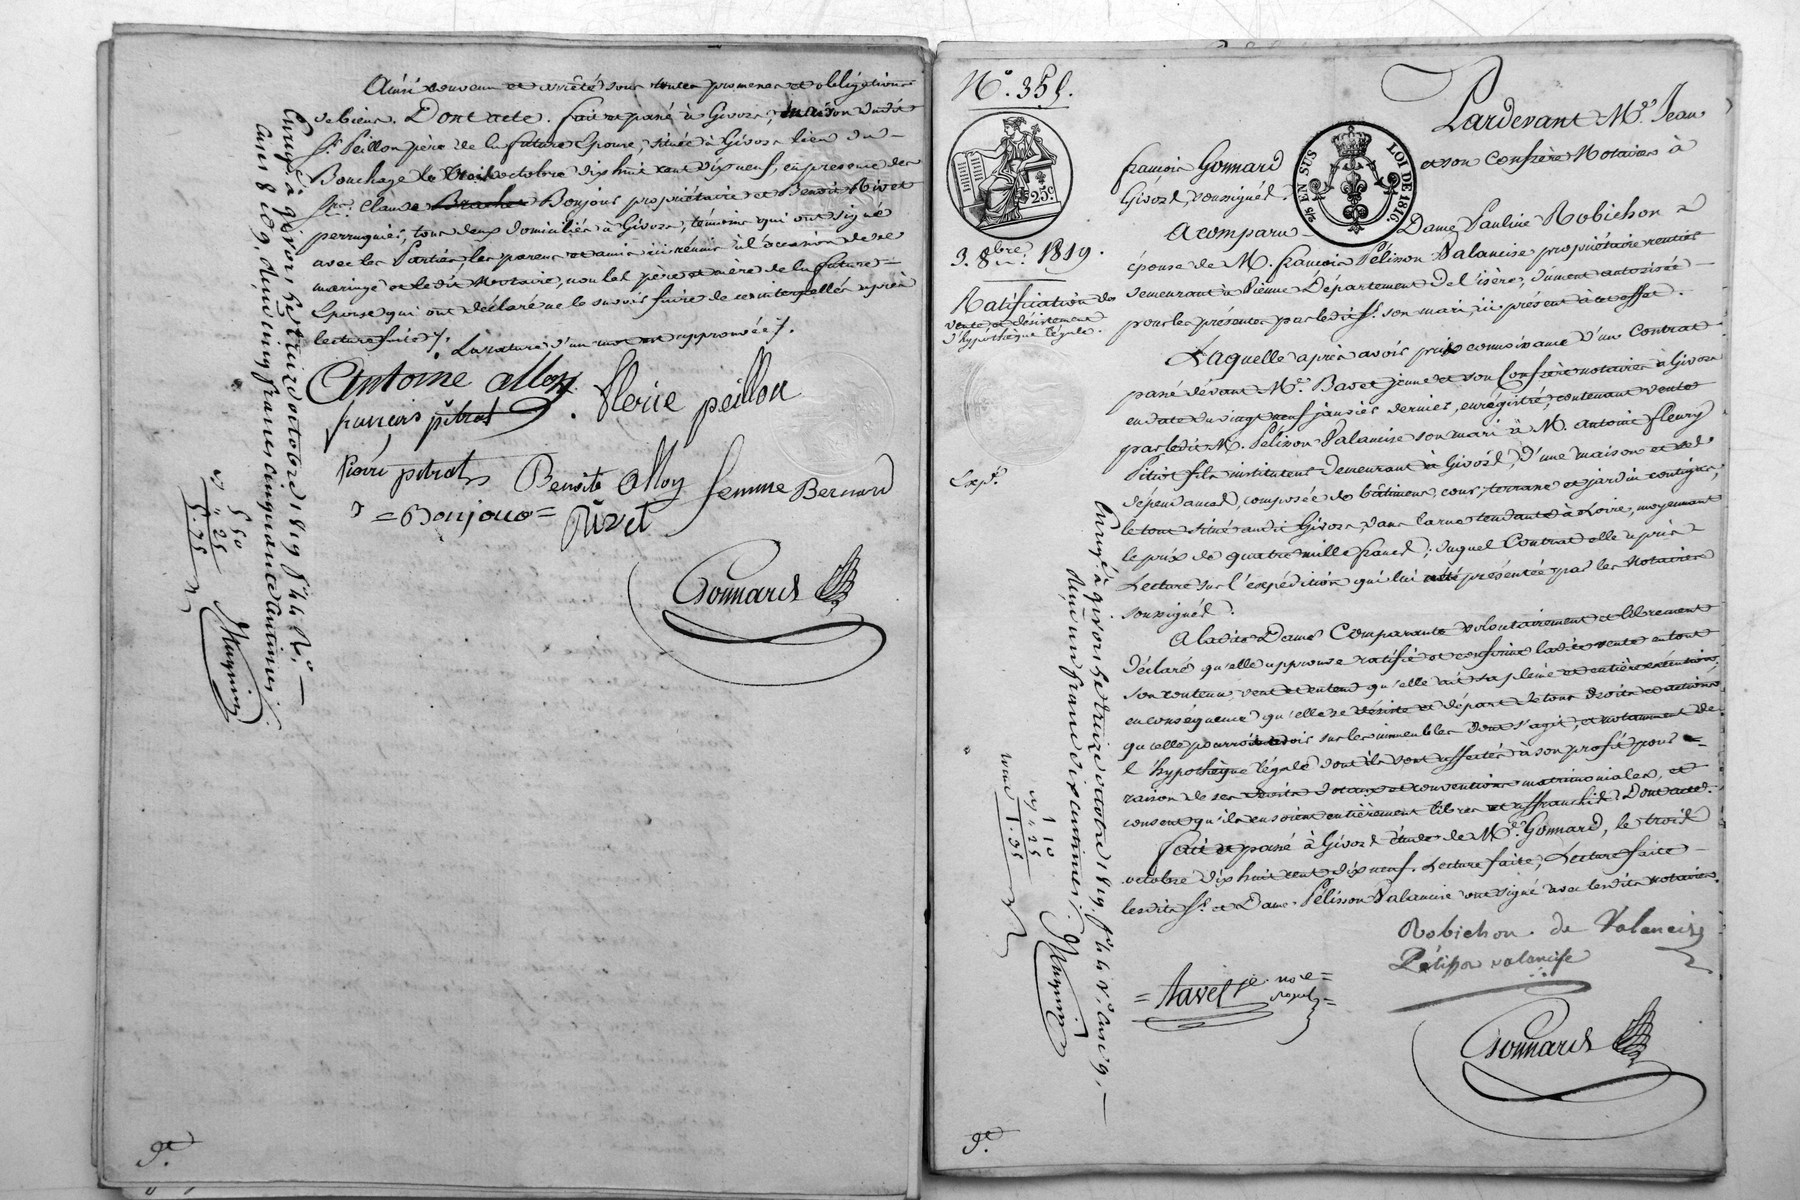 Ainsi convenu et arrêté sous toutes promesses et obligations
de biens. Dont acte. fait et passé à Givors, maison dudit
Sr. Peillon père de la future Epouse, située à Givors lieu du
Bouchage le trois octobre dix huit cent dix neuf, en présence des
Srs. Claude Bonjour propriétaire et Benoit Rivet
perruquier, tous deux domiciliés à Givors, témoins qui ont signé
avec les Parties, les parens et amis ici réunis à l'occasion de ce
mariage et ledit Notaire, non les père et mère de la future
Epouse qui ont déclaré ne le savoir faire de ce interpellés après
lecture faite ./. La rature d'un mot est approuvée ./.
Antoine alloy. fleurie peillon
françois pitrat
pierre pitrat Benoite Alloy femme Bernard
= Bonjour = Rivet
Gonnard
Enregé. à givors le treize octobre 1819 fo. 44 Ro.
Cases 8 et 9, reçu cinq francs cinquante centimes
5 50
" 25
5.75
Mugnier
9e.
No. 359.
25c.
3. 8bre. 1819.
Ratification de
vente et désistement
d'hypothèque légale.
Exp.
2/5 EN SUS LOI DE 1816
Pardevant Me. Jean
françois Gonnard et son Confrère Notaires à
Givors, soussignés.
A comparu Dame Pauline Robichon
épouse de M. françois Pélisson Valancise propriétaire rentier
demeurant à Vienne Département de l'isère, dument autorisée
pour les présentes par ledit Sr. son mari ici présent à cet effet.
Laquelle après avoir pris connoissance d'un Contrat
passé dévant Me. Bavet jeune et son Confrère notaires à Givors
en date du vingt neuf janvier dernier, enrégistré, contenant vente
par ledit M. Pélisson Valancise son mari à M. Antoine fleury
Pitiot fils instituteur demeurant à Givors, d'une maison et ses
dépendances, composée de bâtimens, cour, terrasse et jardin contigus,
le tout situé audit Givors, dans la rue tendante à Loire, moyennant
le prix de quatre mille francs; duquel Contrat elle a pris
Lecture sur l'expédition qui lui a été présentée par les Notaires
soussignés.
A ladite Dame Comparante volontairement et librement
déclaré qu'elle approuve ratifie et confirme ladite vente en tout
son contenu, veut et entend qu'elle ait sa pleine et entière exécution,
en conséquence qu'elle se désiste et départ de tous droits et actions
qu'elle pourroit avoir sur les immeubles dont s'agit, et notamment de
l'hypothèque légale dont ils sont affectés à son profit pour
raison de ses droits dotaux et conventions matrimoniales, et
consent qu'ils en soient entièrement libres et affranchis. Dont acte.
fait et passé à Givors étude de Me. Gonnard, le trois
octobre dix huit cent dix neuf. Lecture faite, Lecture faite
lesdits Sr. et Dame Pélisson Valancise ont signé avec lesdits notaires.
Robichon de Valancise
Pélisson valancise
Gonnard
Enregé. à givors le treize octobre 1819. fo. 44 Vo. Case 9,
reçu un franc dix centimes.
1 10
" 25
1.35
Mugnier
9e.